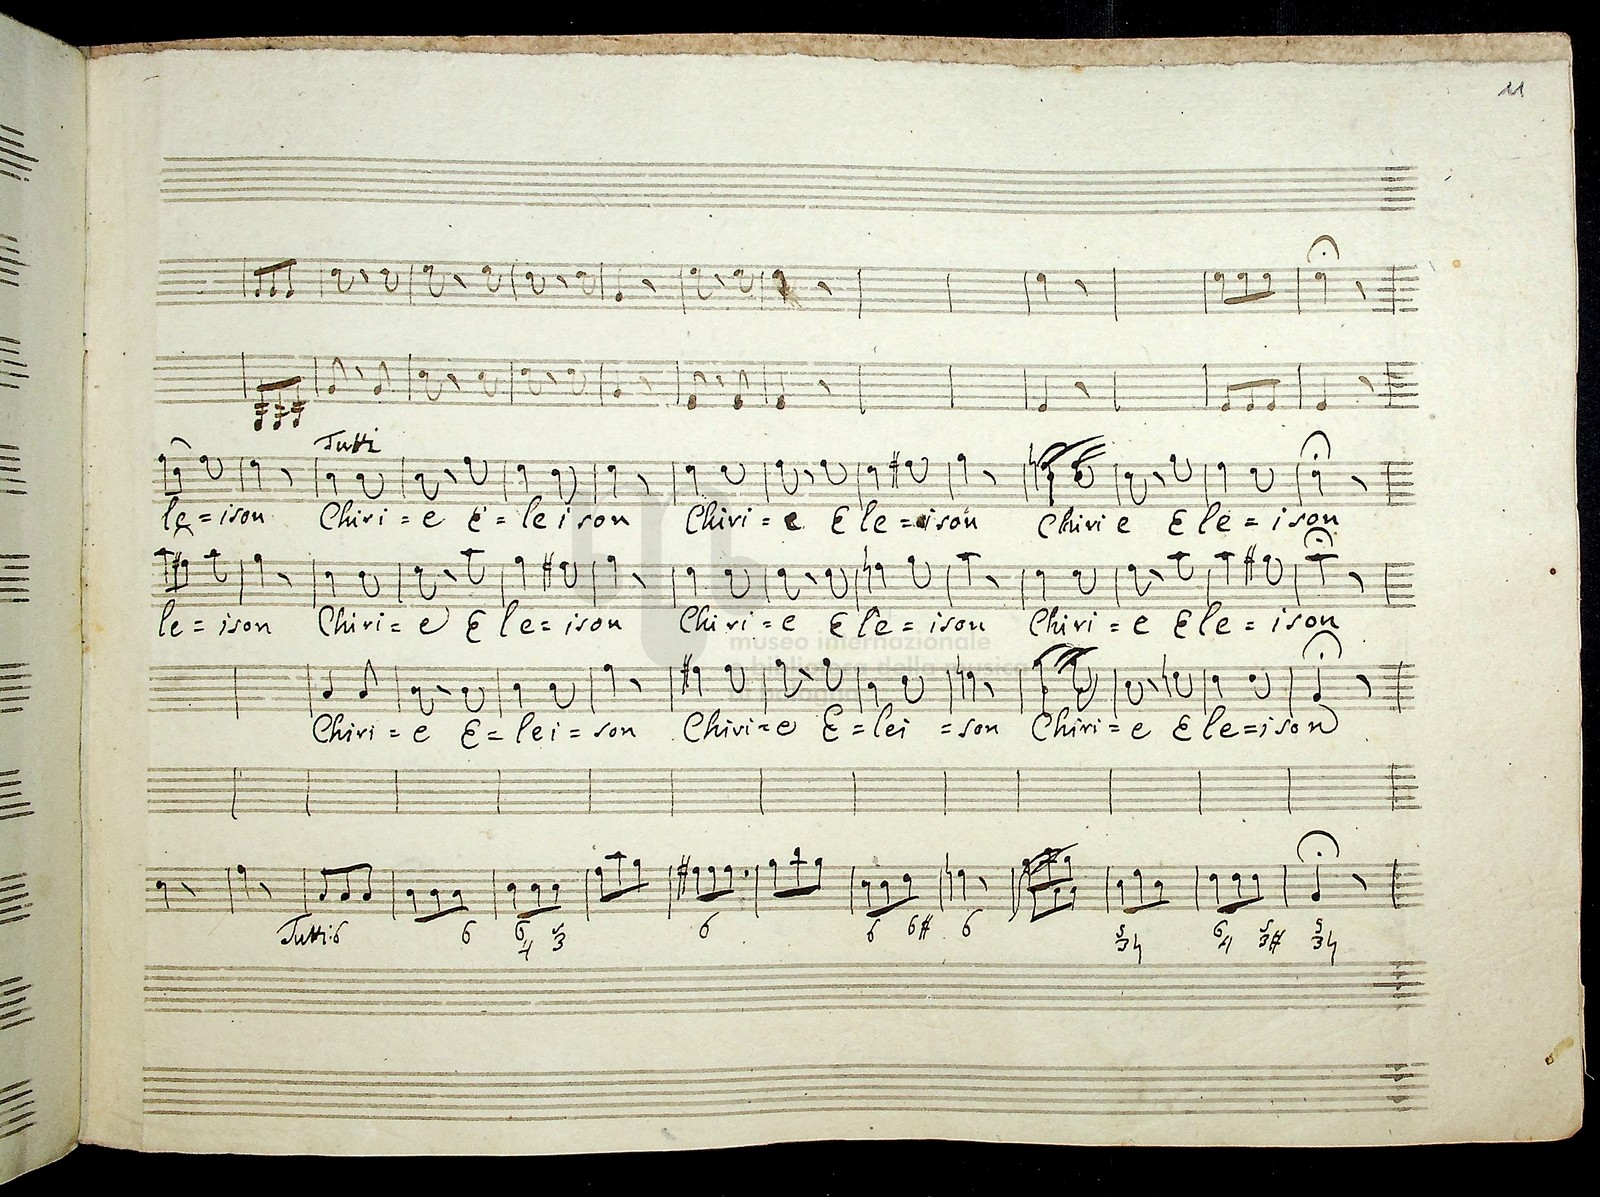 11
Tutti
le = ison Chiri = e E = le ison Chiri = e Ele = ison Chiri e Ele = ison
le = ison Chiri = e Ele = ison Chiri = e Ele = ison Chiri = e Ele = ison
museo internazionale
biblioteca della musica
Chiri = e E = lei = son Chiri = e E = lei = son Chiri = e Ele = ison
Tutti 6 6 6 5 6 6 6# 6 5 6 5 5
4 3 3♮ 4 3# 3♮